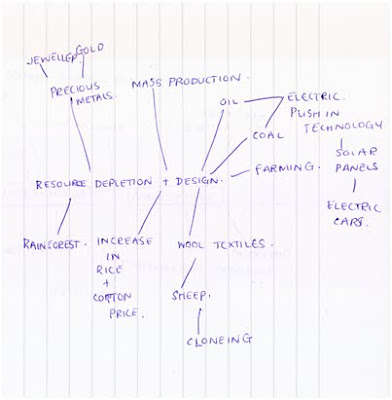 JEWELLER
GOLD
PRECIOUS
METALS.
MASS PRODUCTION.
OIL
ELECTRIC.
PUSH IN
TECHNOLOGY
COAL
SOLAR
PANELS
FARMING.
RESOURCE DEPLETION + DESIGN.
ELECTRIC
CARS.
RAINFOREST.
INCREASE
IN
RICE
+
COTTON
PRICE.
WOOL TEXTILES.
SHEEP.
CLONEING